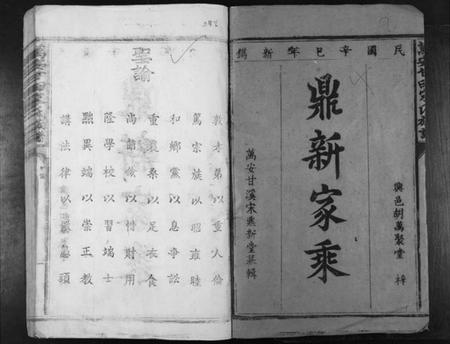 民國辛巳年新鐫
興邑胡萬聚堂梓
鼎新家乘
萬安甘溪宋鼎新堂纂輯
聖諭
敦孝弟以重人倫
篤宗族以昭雍睦
和鄉黨以息爭訟
重農桑以足衣食
尚節儉以惜財用
隆學校以端士習
黜異端以崇正
講法律以儆頑